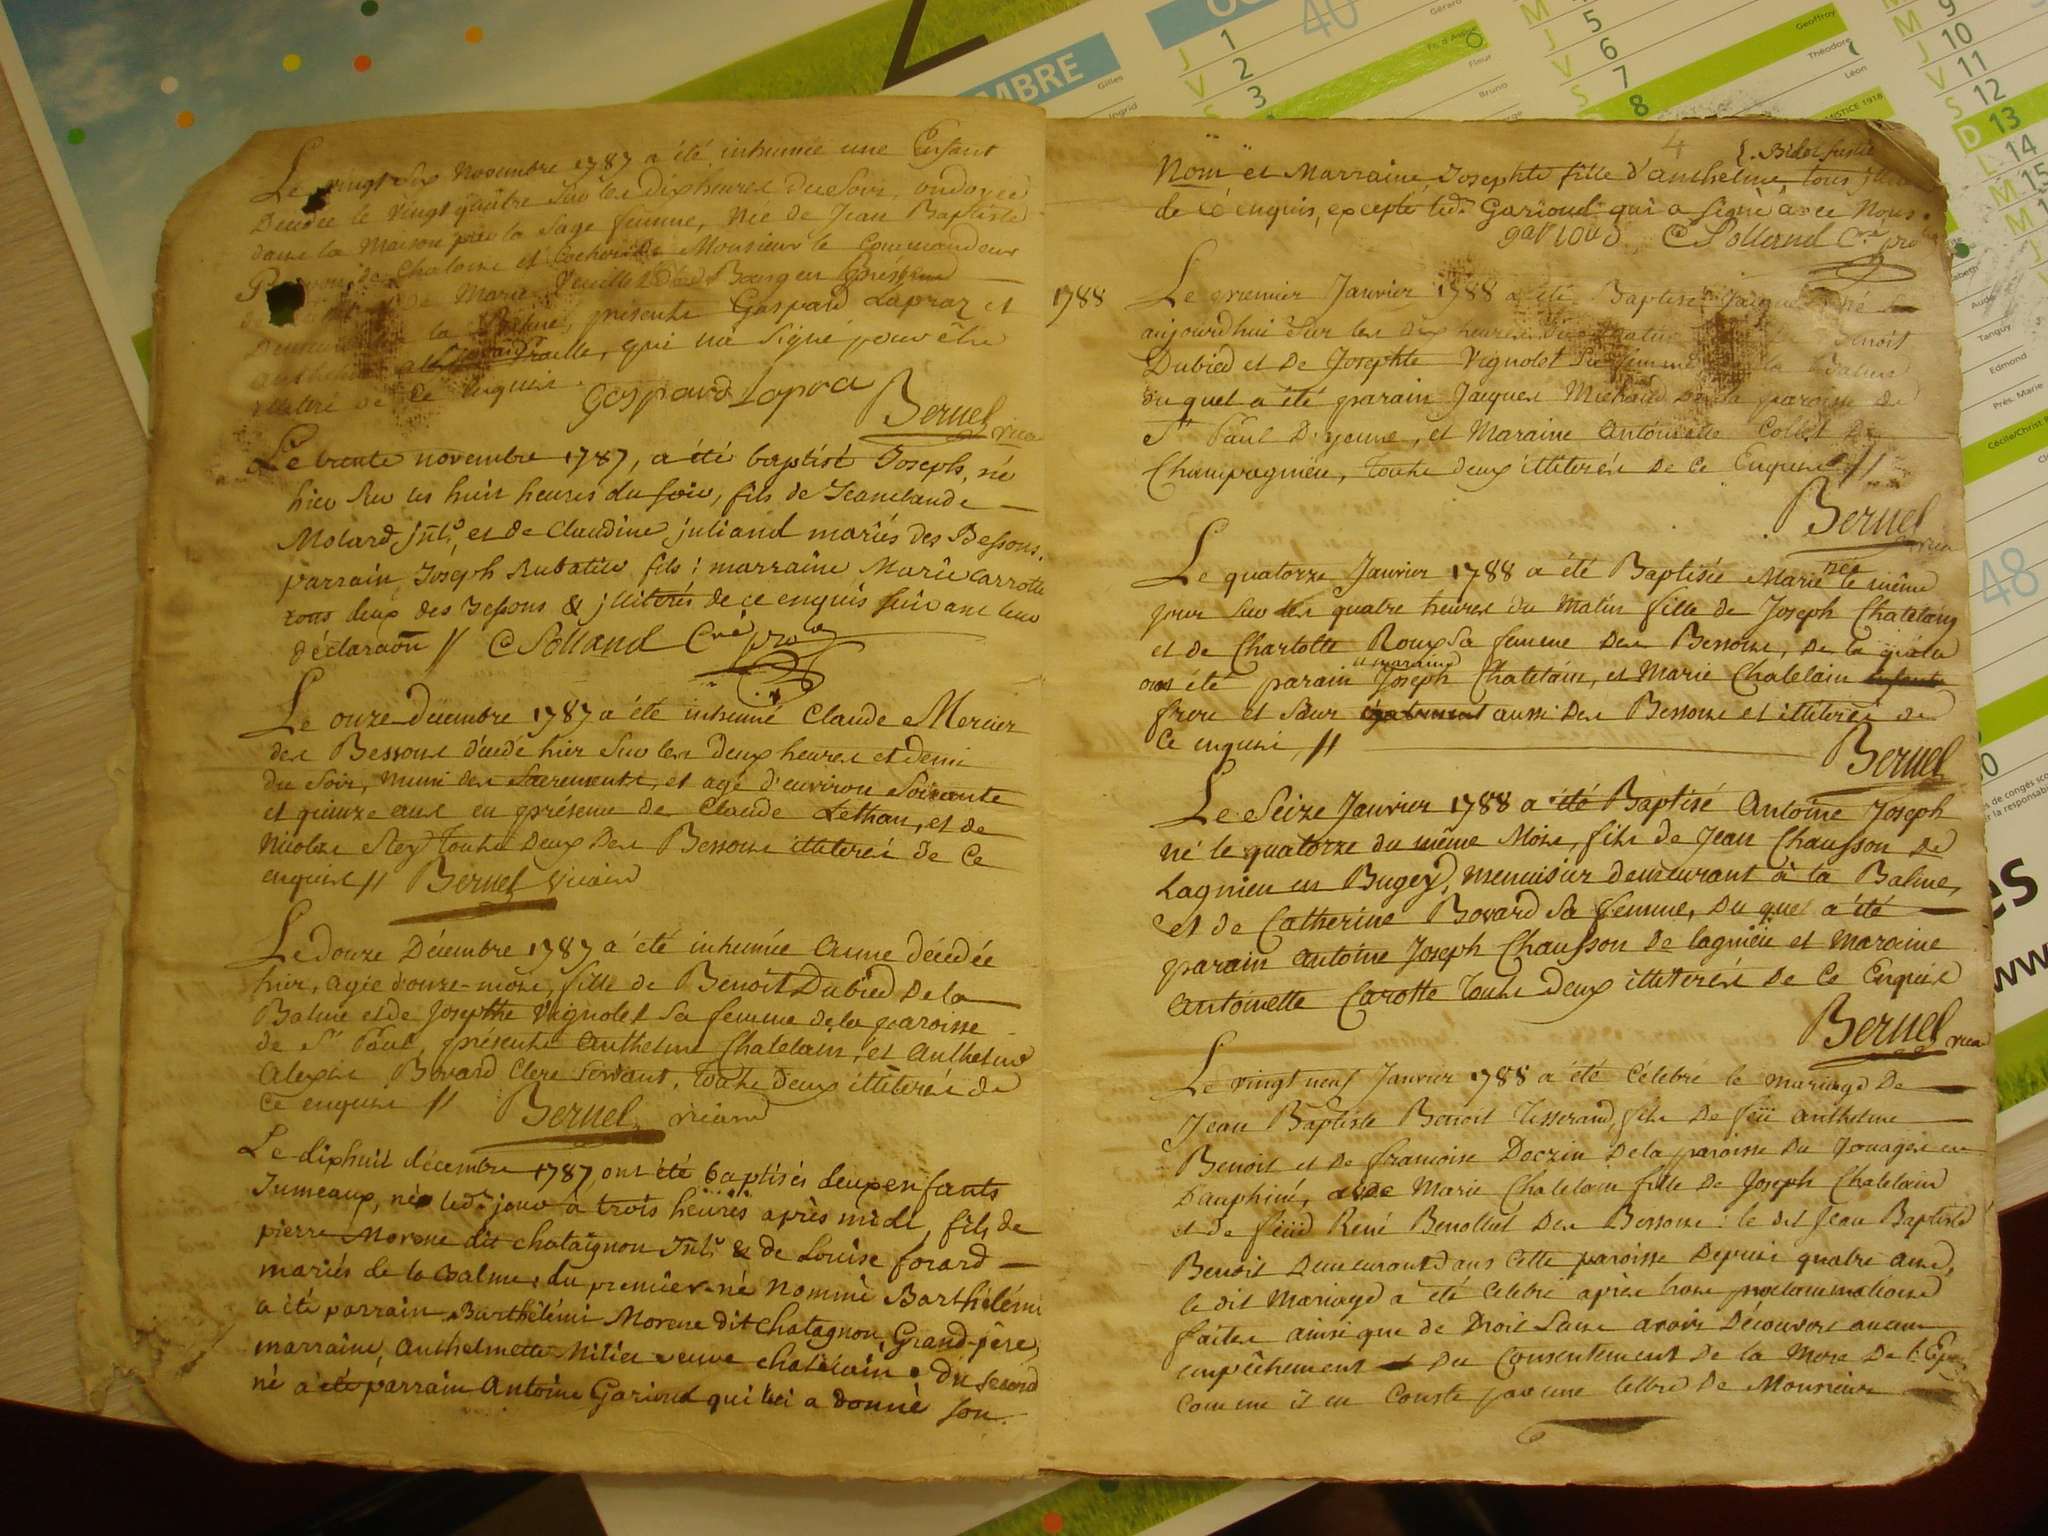 Le vingt Six Novembre 1787 a été inhumée une Enfant
Décédée le Vingt quâtre Sur les dix heures du Soir, ondoyée
dans la Maison par la Sage femme, Née de Jean Baptiste
de Chaloine et Cocher de Monsieur le Commandeur
de Marie
la Balme, présents Gaspard Lapraz et
qui na Signé pour être
illitéré de ce enquis.
Gaspard Lapra
Bernel vica
Le trente novembre 1787, a été baptisé Joseph, né
hier Sur les huit heures du soir, fils de Jeanclaude
Molard et de Claudine juliand mariés des Bessons.
parrain Joseph Rubatier fils; marraine Marie Carrotte
tous deux des Bessons & illiterés de ce enquis suivant leur
déclaraon // C Solland Cré
Le onze decembre 1787 a été inhumé Claude Mercier
des Bessons décédé hier Sur les deux heures et demi
du Soir, muni des Sacrements, et agé d'environ Soixante
et quinze ans en présence de Claude Lethan, et de
Nicolas Rey touts deux des Bessons illiterés de Ce
enquis // Bernel vicaire
Le douze Décembre 1787 a été inhumée Anne décédée
hier, agée d'onze-mois, fille de Benoit Dubied De la
Balme et de Josephte Vignolet Sa femme de la paroisse
de St Paul, présents Anthelme Chatelain, et Anthelme
Alexis Bovard Clerc Servant, touts deux illiterés de
Ce enquis // Bernel vicaire
Le dixhuit décembre 1787, ont été baptisés deux enfants
Jumeaux, nés led.t jour à trois heüres après midi, fils de
pierre Morene dit chataignon & de Louise forard
mariés de la Balme. du premier-né nommé Barthélémi
a été parrain Barthélémi Morene dit chatagnon, Grand-père,
marraine, Anthelmette Milier veuve chatelain. Du second
né a été parrain Antoine Garioud qui lui a donné son
4
Nom et Marraine Josephte fille d'anthelme, tous
de ce enquis, excepté led.t Garioud qui a signé avec Nous.
garioud C Solland Cré
1788
Le premier Janvier 1788 a été Baptisé Jacques né
aujourdhui Sur les dix heures du matin Benoit
Dubied et de Josephte Vignolet Sa femme de la Balme
du quel a été parain Jacques Michaud de la paroisse de
St Paul D'yenne, et Maraine Antoinette Collet De
Champagnieu, touts deux illiterés de Ce Enquis //
Bernel vica
Le quatorze Janvier 1788 a été Baptisée Marie née le même
jour Sur les quatre heures du Matin fille de Joseph Chatelain
et de Charlotte Roux Sa femme Des Bessons, de la quelle
ont été parain et maraine Joseph Chatelain, et Marie Chatelain
frere et Sœur aussi Des Bessons et illiterés de
Ce enquis //
Bernel
Le Seize Janvier 1788 a été Baptisé Antoine Joseph
né le quatorze du même Mois, fils de Jean Chausson de
Lagnieu en Bugey, menuisier demeurant à la Balme,
et de Catherine Bovard Sa femme, du quel a été
parain Antoine Joseph Chausson de lagnieu et Maraine
Antoinette Carotte touts deux illiterés De Ce Enquis
Bernel vica
Le vingt neuf Janvier 1788 a été Célebré le mariage De
Jean Baptiste Benoit Tisserand, fils De feü Anthelme
Benoit et De francoise Doczin De la paroisse Du Jouages en
Dauphiné, avec Marie Chatelain fille De Joseph Chatelain
et De feüe René Benollet Des Bessons: le dit Jean Baptiste
Benoit Demeurant dans Cette paroisse Depuis quatre ans,
le dit Mariage a été Celebré après trois proclamations
faites ainsi que de Droit Sans avoir Découvert aucun
empêchement et du Consentement de la Mere De l'Ep
comme il en Conste par une lettre De Monsieur
MBRE
1
2
3
40
5
6
7
8
9
10
11
12
13
14
15
48
Gilles
Ingrid
Gérard
Fleur
Bruno
Geoffroy
Théodore
Léon
Tanguy
Edmond
Prés. Marie